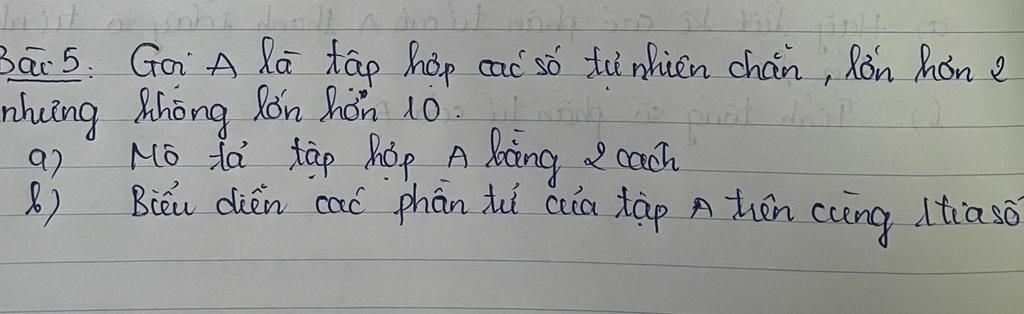 Bài 5: Gọi A là tập hợp các số tự nhiên chẵn, lớn hơn 2
nhưng không lớn hơn 10.
a) Mô tả tập hợp A bằng 2 cách
b) Biểu diễn các phần tử của tập A trên cùng 1 tia số